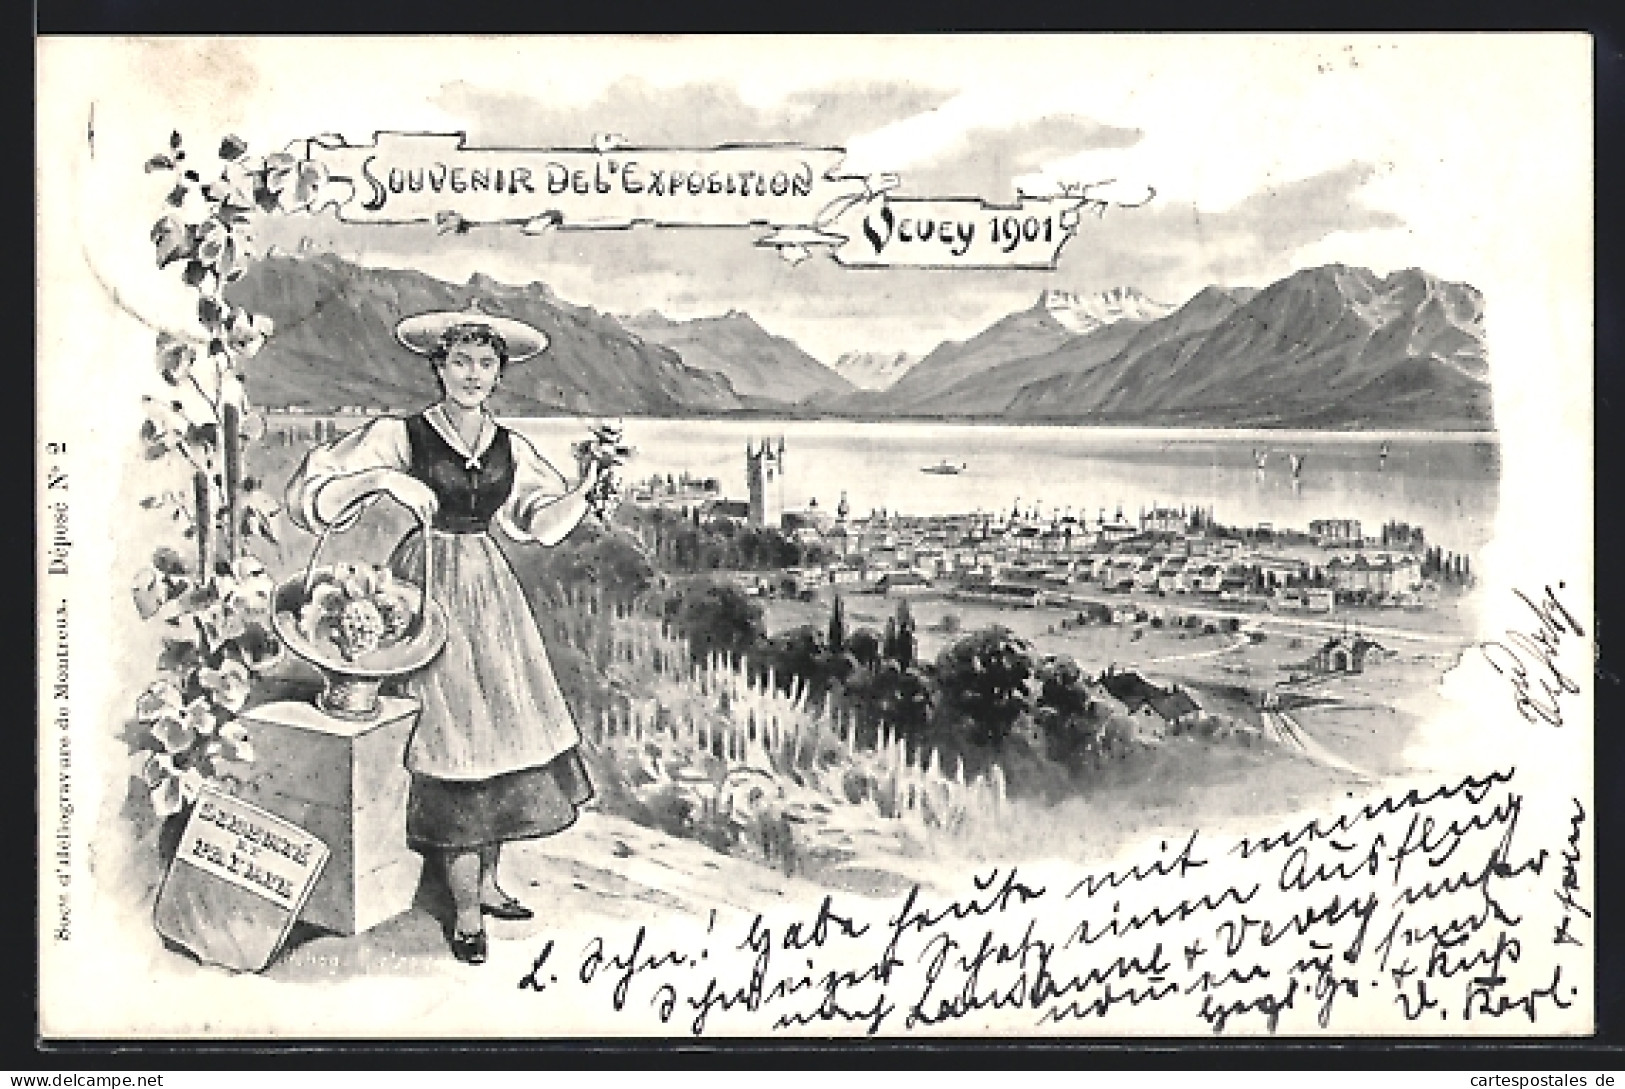 Souvenir de l'Exposition
Vevey 1901
Socte d'Héliogravure du Montreux. Déposé No 2
LIBERTÉ
ET
PATRIE
L. Schn.! Habe heute mit meinem
Schweizer Schatz einen Ausflug
nach Lausanne & Vevey unter
nomen u. sende
Hezl. Gr. & Kuß
V. Karl.